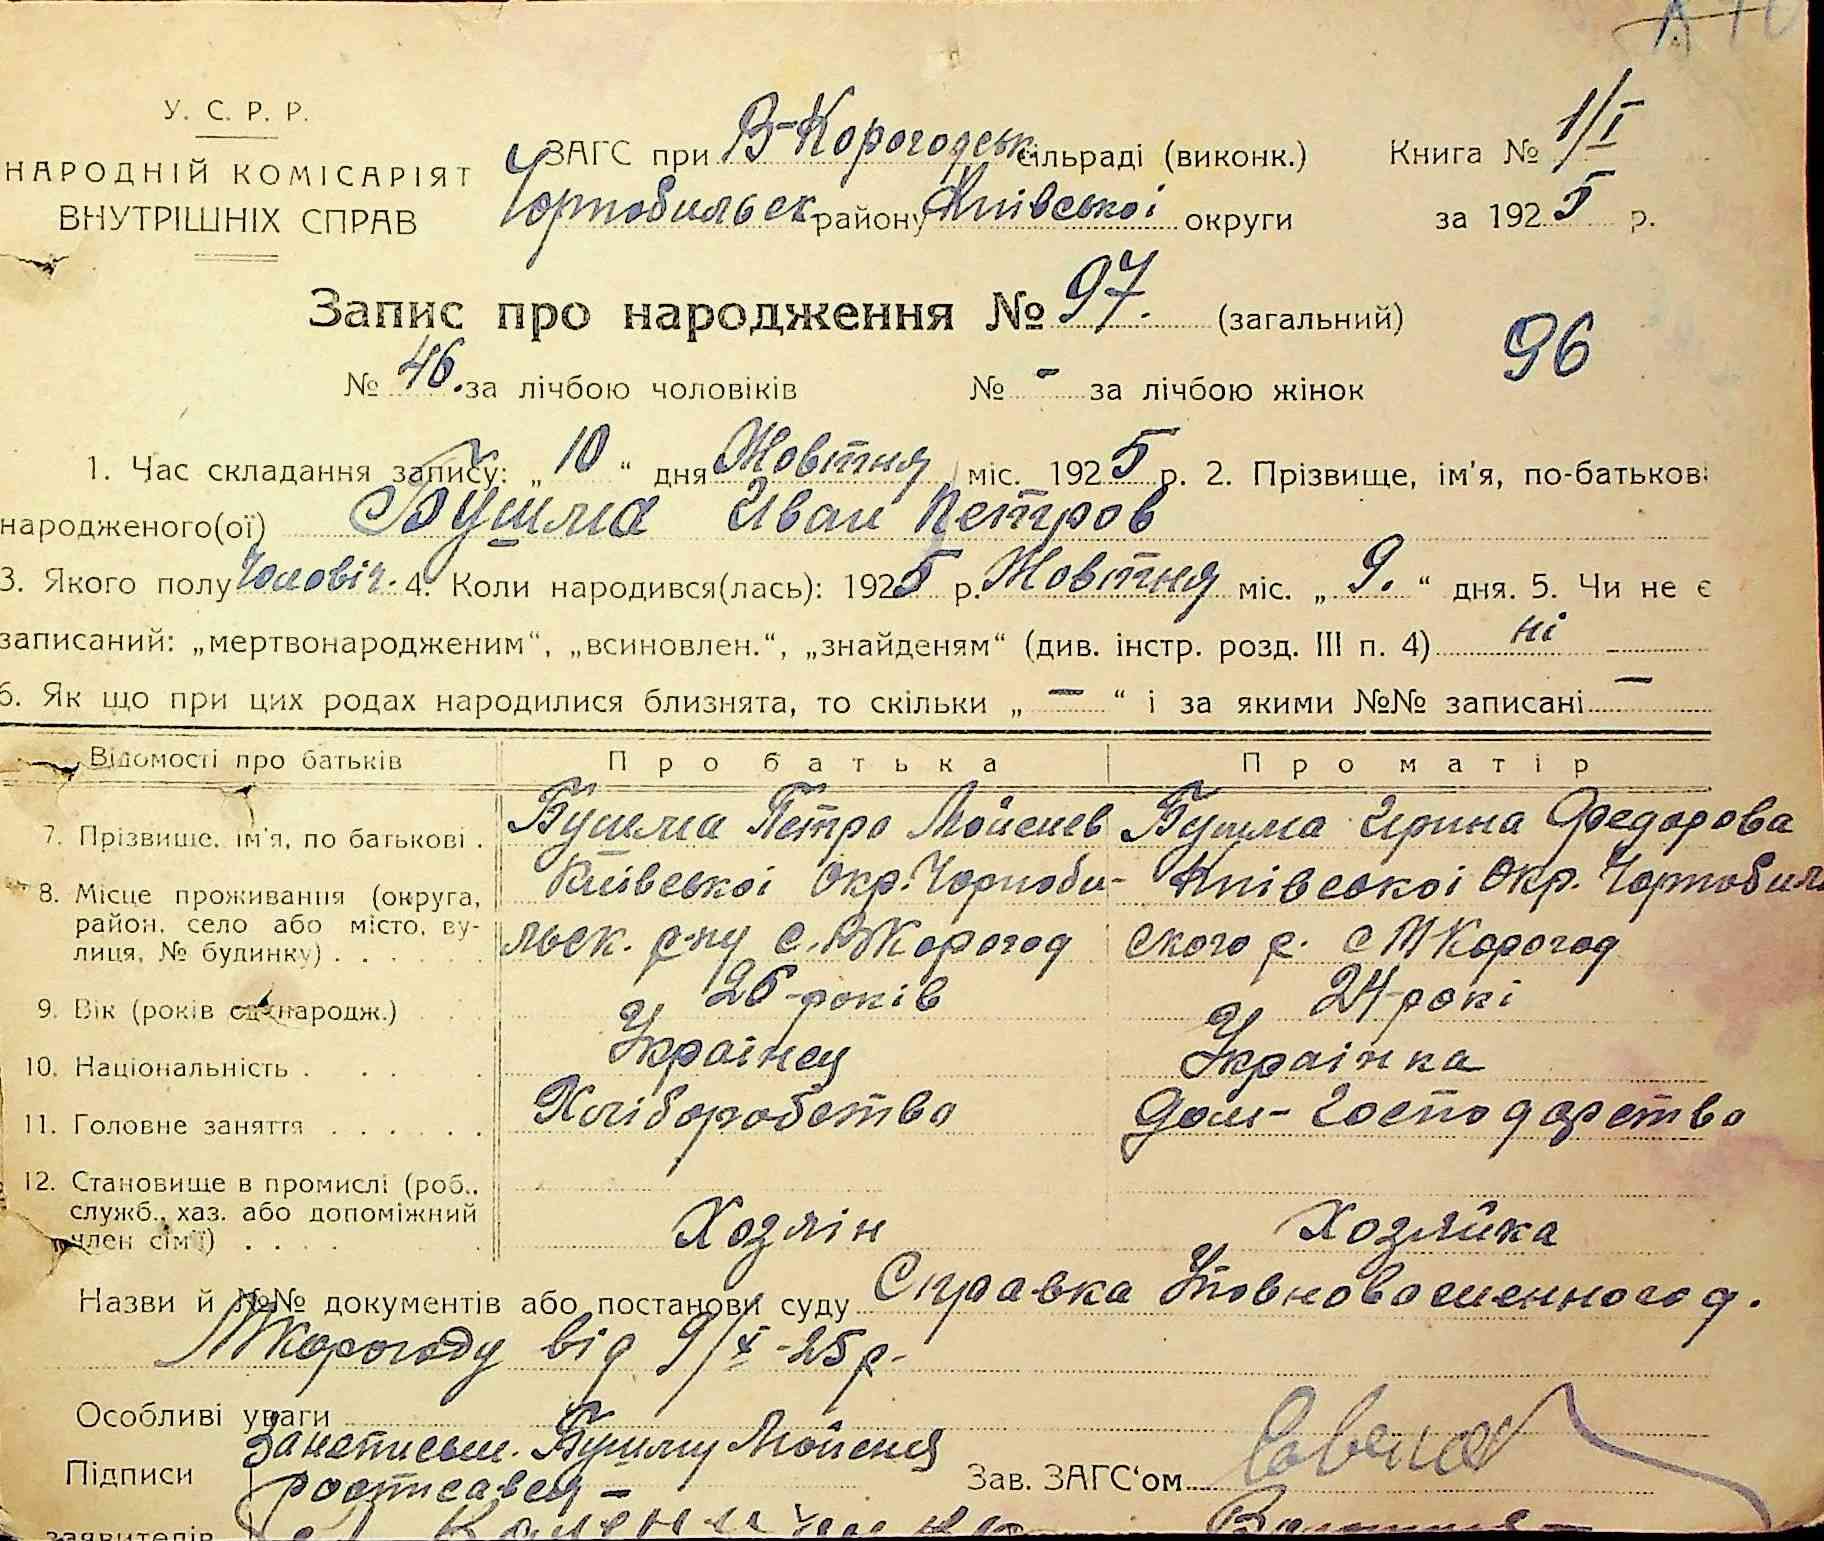 У. С. Р. Р.
НАРОДНІЙ КОМІСАРІЯТ
ВНУТРІШНІХ СПРАВ
ЗАГС при В-Корогодськ сільраді (виконк.) Книга № 1/I
Чорнобильськ району Київської округи за 1925 р.
Запис про народження № 97. (загальний)
96
№ 46. за лічбою чоловіків № - за лічбою жінок
1. Час складання запису: „10“ дня Жовтня міс. 1925 р. 2. Прізвище, ім'я, по-батькові
народженого(ої) Бушма Иван Петров
3. Якого полу Чоловіч. 4. Коли народився(лась): 1925 р. Жовтня міс. „9.“ дня. 5. Чи не є
записаний: „мертвонародженим“, „всиновлен.“, „знайденям“ (див. інстр. розд. III п. 4) ні
6. Як що при цих родах народилися близнята, то скільки „—“ і за якими №№ записані —
Відомості про батьків Про батька Про матір
7. Прізвище, ім'я, по батькові . Бушма Петро Мойсеев Бушма Ирина Федорова
8. Місце проживання (округа, район, село або місто, вулиця, № будинку) . . . . . .
Київської Окр. Чорноби-
льск. р-ну с. Корогод
Київської Окр. Чорнобил
ского р. с М Корогод
9. Вік (років од народж.) 26-років 24-рокі
10. Національність . . . . Українец Українка
11. Головне заняття . . . . . . Хліборобство Дом-Господарство
12. Становище в промислі (роб., служб., хаз. або допоміжний член сім'ї) . . . . Хозяін Хозяйка
Назви й №№ документів або постанови суду Справка Уповновашенного д.
МКорогоду від 9/X-25р-
Особливі уваги
Підписи Бушму Мойсея
Зав. ЗАГС'ом
заявителів